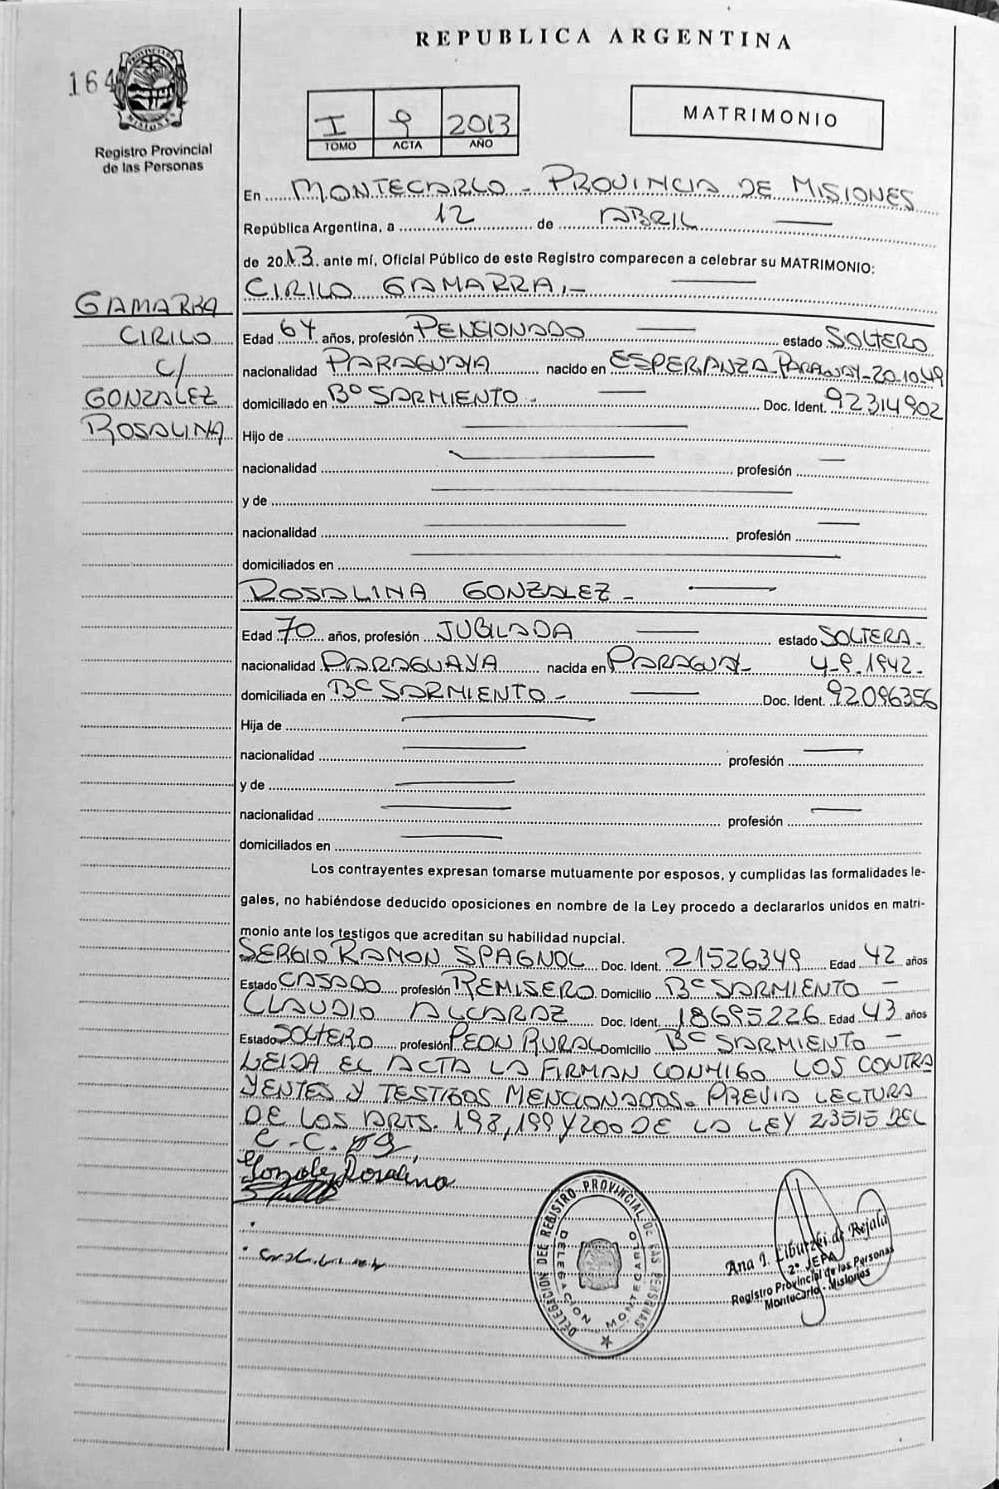 REPUBLICA ARGENTINA
164
PROVINCIA DE MISIONES
Registro Provincial
de las Personas
I 9 2013
TOMO ACTA AÑO
MATRIMONIO
En MONTECARLO - PROVINCIA DE MISIONES
República Argentina, a 12 de ABRIL
de 2013. ante mí, Oficial Público de este Registro comparecen a celebrar su MATRIMONIO:
CIRILO GAMARRA.-
GAMARRA
CIRILO
c/
GONZALEZ
ROSALINA
Edad 64 años, profesión PENSIONADO estado SOLTERO
nacionalidad PARAGUAYA nacido en ESPERANZA-PARAGUAY-20.10.49
domiciliado en Bº SARMIENTO - Doc. Ident. 92314902
Hijo de
nacionalidad profesión
y de
nacionalidad profesión
domiciliados en
ROSALINA GONZALEZ -
Edad 70 años, profesión JUBILADA estado SOLTERA.
nacionalidad PARAGUAYA nacida en PARAGUAY- 4-9-1942-
domiciliada en Bº SARMIENTO - Doc. Ident. 92096356
Hija de
nacionalidad profesión
y de
nacionalidad profesión
domiciliados en
Los contrayentes expresan tomarse mutuamente por esposos, y cumplidas las formalidades le-
gales, no habiéndose deducido oposiciones en nombre de la Ley procedo a declararlos unidos en matri-
monio ante los testigos que acreditan su habilidad nupcial.
SERGIO RAMON SPAGNOL Doc. Ident. 21526349 Edad 42 años
Estado CASADO profesión REMISERO Domicilio Bº SARMIENTO -
CLAUDIO ALCARAZ Doc. Ident. 18695226 Edad 43 años
Estado SOLTERO profesión PEON RURAL Domicilio Bº SARMIENTO -
LEIDA EL ACTA LA FIRMAN CONMIGO LOS CONTRA
YENTES Y TESTIGOS MENCIONADOS. PREVIA LECTURA
DE LOS ARTS. 198, 199 Y 200 DE LA LEY 23515 DEL
C.C.
Gonzalez Rosalina
DELEGACION DEL REGISTRO PROVINCIAL DE LAS PERSONAS
DELEGACION MONTECARLO
Ana I. de Rejala
2ª JEFA
Registro Provincial de las Personas
Montecarlo - Misiones